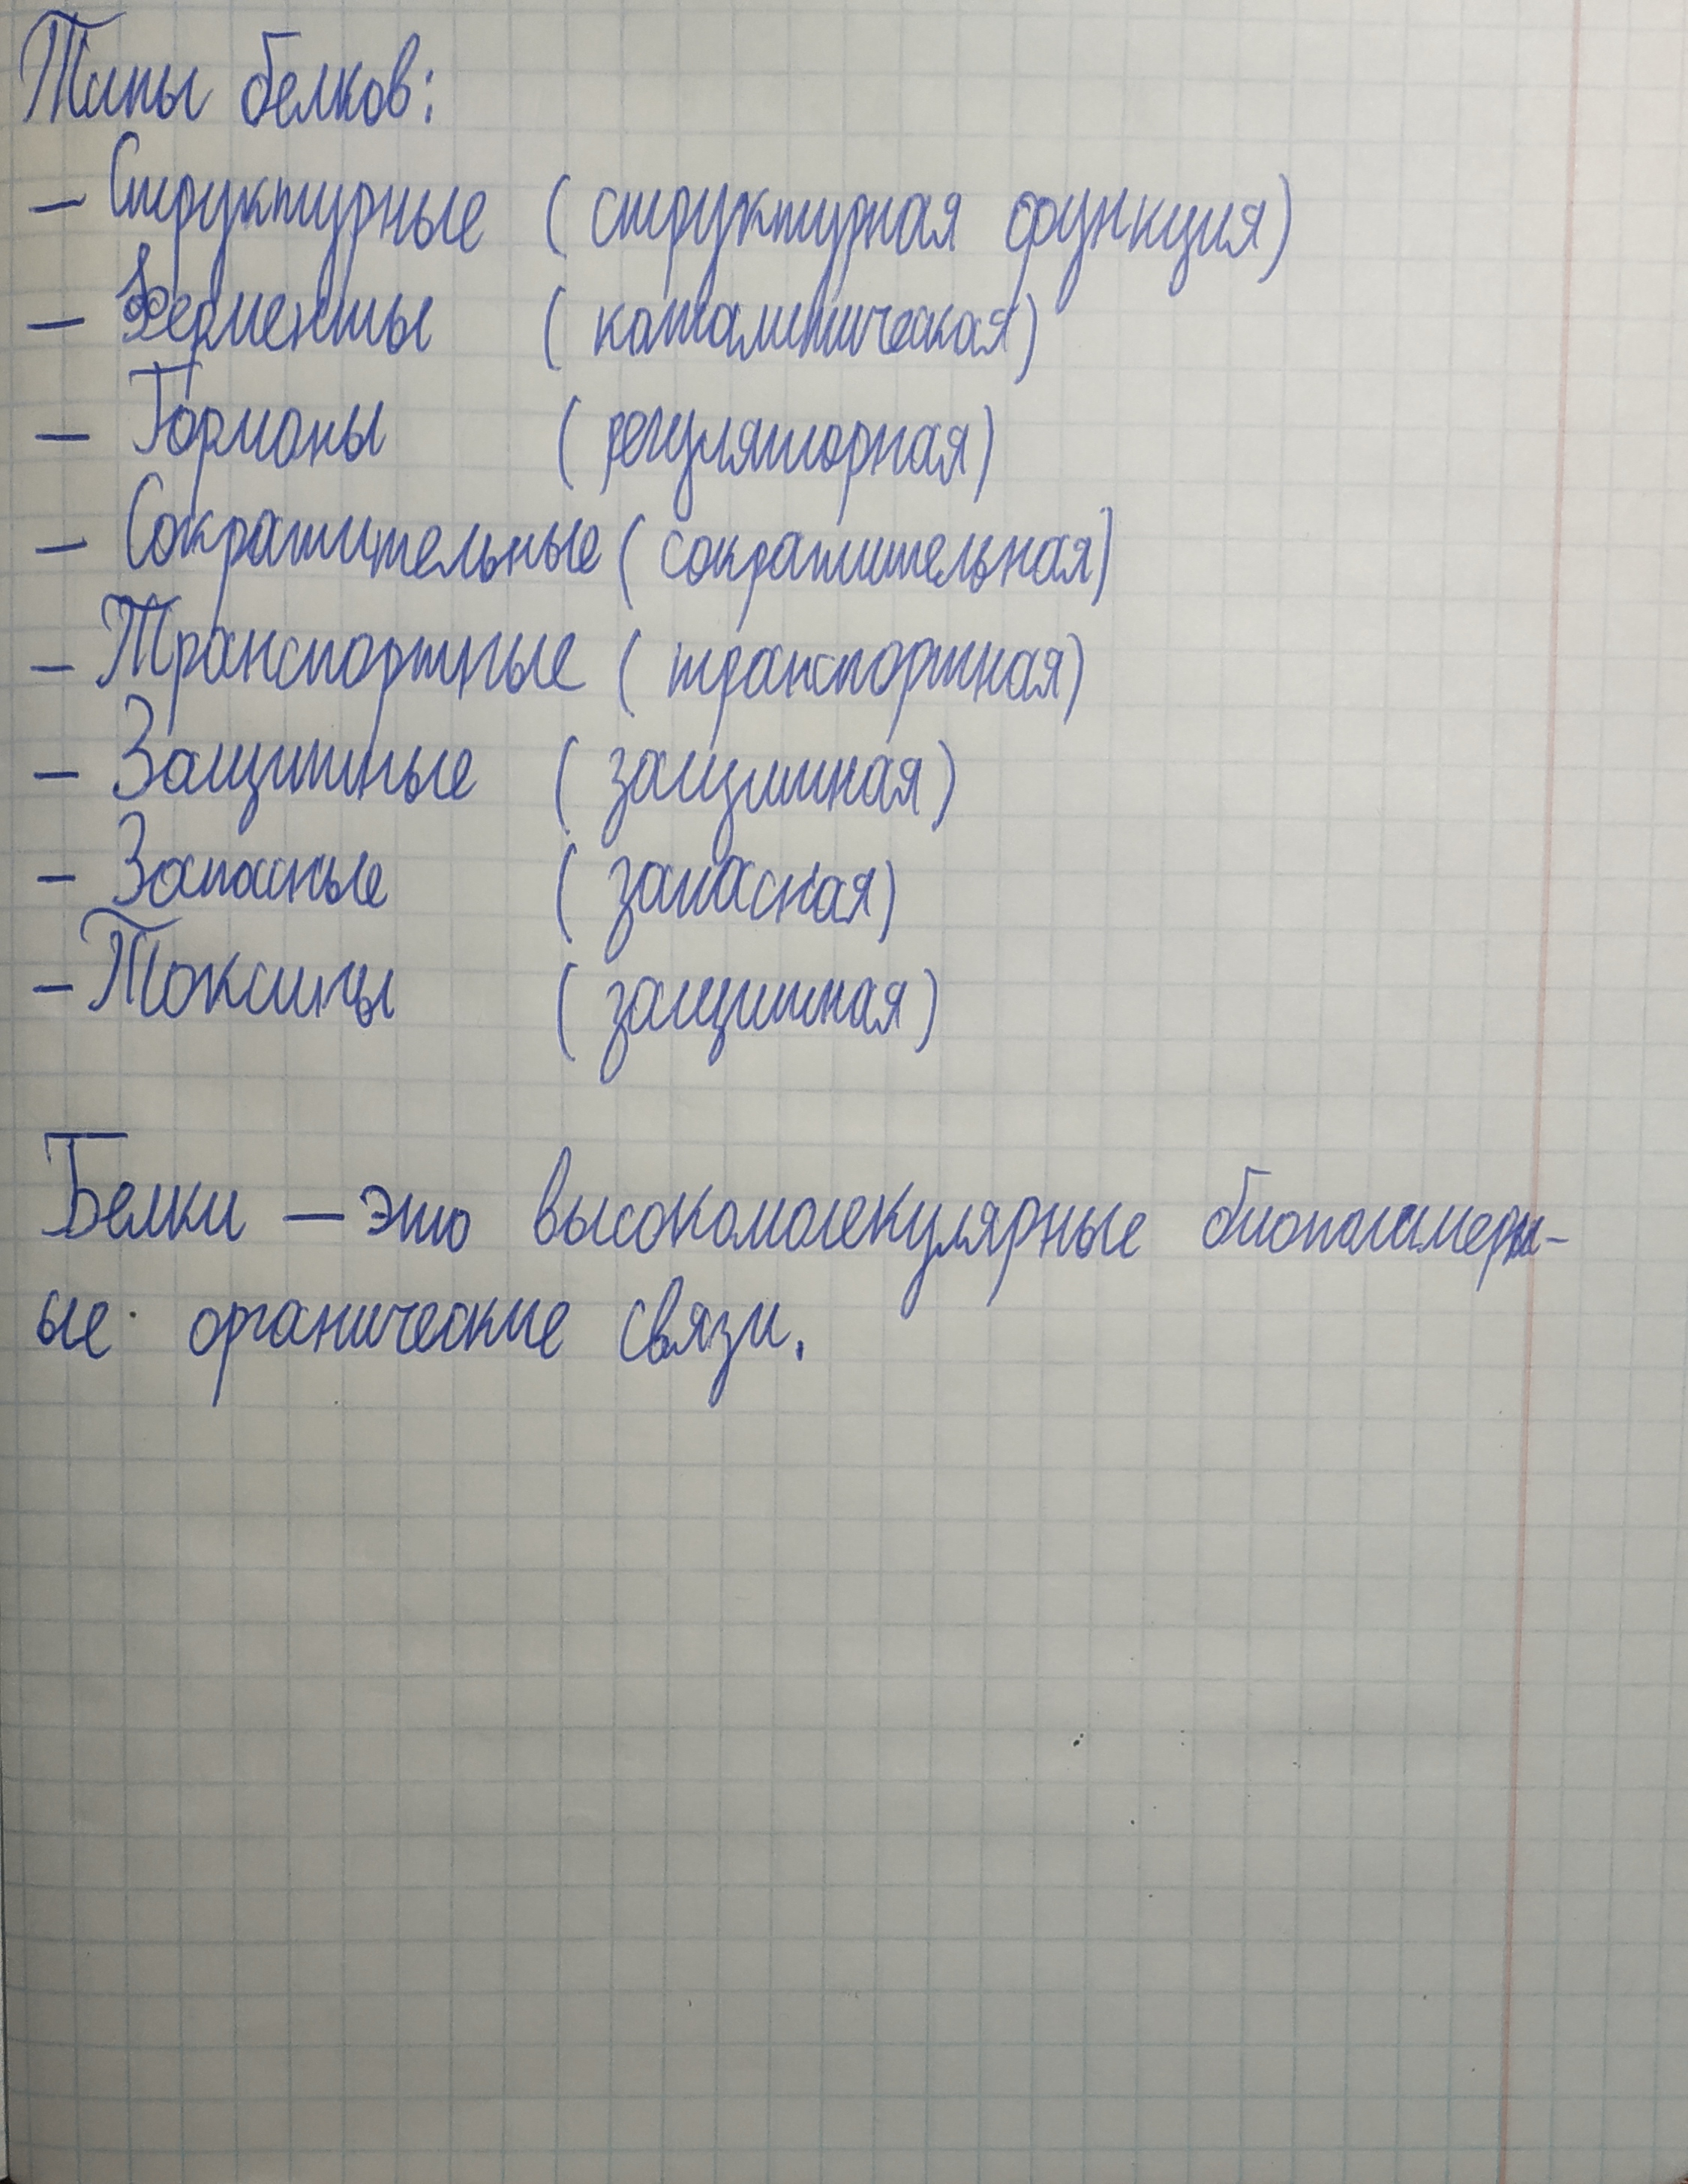 Типы белков:
- Структурные (структурная функция)
- Ферменты (каталитическая)
- Гормоны (регуляторная)
- Сократительные (сократительная)
- Транспортные (транспортная)
- Защитные (защитная)
- Запасные (запасная)
- Токсины (защитная)
Белки - это высокомолекулярные биополимерн-
ые органические связи.